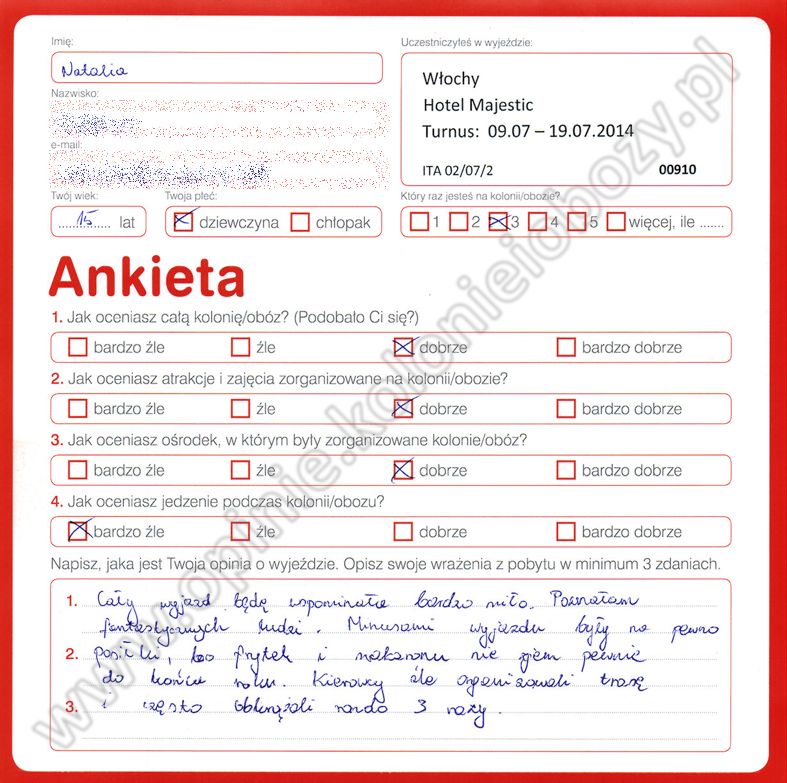 Imię:
Natalia
Nazwisko:
e-mail:
Twój wiek:
15 lat
Twoja płeć:
dziewczyna chłopak
Uczestniczyłeś w wyjeździe:
Włochy
Hotel Majestic
Turnus: 09.07 – 19.07.2014
ITA 02/07/2 00910
Który raz jesteś na kolonii/obozie?
1 2 3 4 5 więcej, ile .......
Ankieta
1. Jak oceniasz całą kolonię/obóz? (Podobało Ci się?)
bardzo źle źle dobrze bardzo dobrze
2. Jak oceniasz atrakcje i zajęcia zorganizowane na kolonii/obozie?
bardzo źle źle dobrze bardzo dobrze
3. Jak oceniasz ośrodek, w którym były zorganizowane kolonie/obóz?
bardzo źle źle dobrze bardzo dobrze
4. Jak oceniasz jedzenie podczas kolonii/obozu?
bardzo źle źle dobrze bardzo dobrze
Napisz, jaka jest Twoja opinia o wyjeździe. Opisz swoje wrażenia z pobytu w minimum 3 zdaniach.
1. Cały wyjazd będę wspominała bardzo miło. Poznałam
fantastycznych ludzi. Minusami wyjazdu były na pewno
2. posiłki, bo frytek i makaronu nie zjem pewnie
do końca roku. Kierowcy źle organizowali trasę
3. i często okrążali rondo 3 razy.
www.opinie.kolonieiobozy.pl